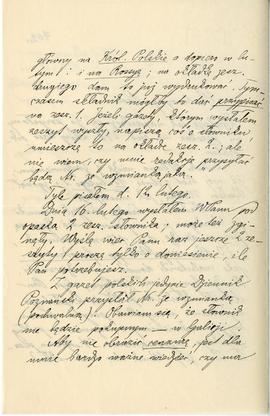 główny na Król. Polskie a dopiero w lu-
tym! : i na Rossyę; na okładkę zesz.
drugiego dam to już wydrukować. Tym-
czasem składnik mógłby to dać przypisać
na zesz. 1. Jeżeli gazety, którym wysłałem
zeszyt wyszły, napiszą coś o słowniku
umieszczę to na okładce zesz. 2.; ale
nie wiem, czy mnie redakcje przysyłać
będą Nr. ze wzmianką jaką."
Tyle pisałem d. 12 lutego.
Dnia 16. lutego wysłałem WPanu pod
opaską 2 zesz. słownika; może też zgi-
nęły. Wyślę więc Panu raz jeszcze 2 ze-
szyty i proszę tylko o doniesienie, ile
Pan potrzebujesz.
Z gazet polskich jedynie Dziennik
Poznański przysłał Nr. ze wzmianką
(pochwalną)! Obawiam się, że słownik
nie będzie pokupnym — w Galicji.
Aby nie obrazić cenzurę, jest dla
mnie bardzo ważne wiedzieć, czy na